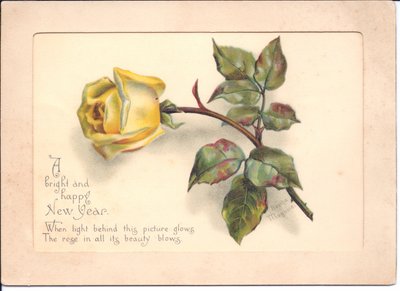 A
bright and
happy
New Year.
When light behind this picture glows
The rose in all its beauty blows.